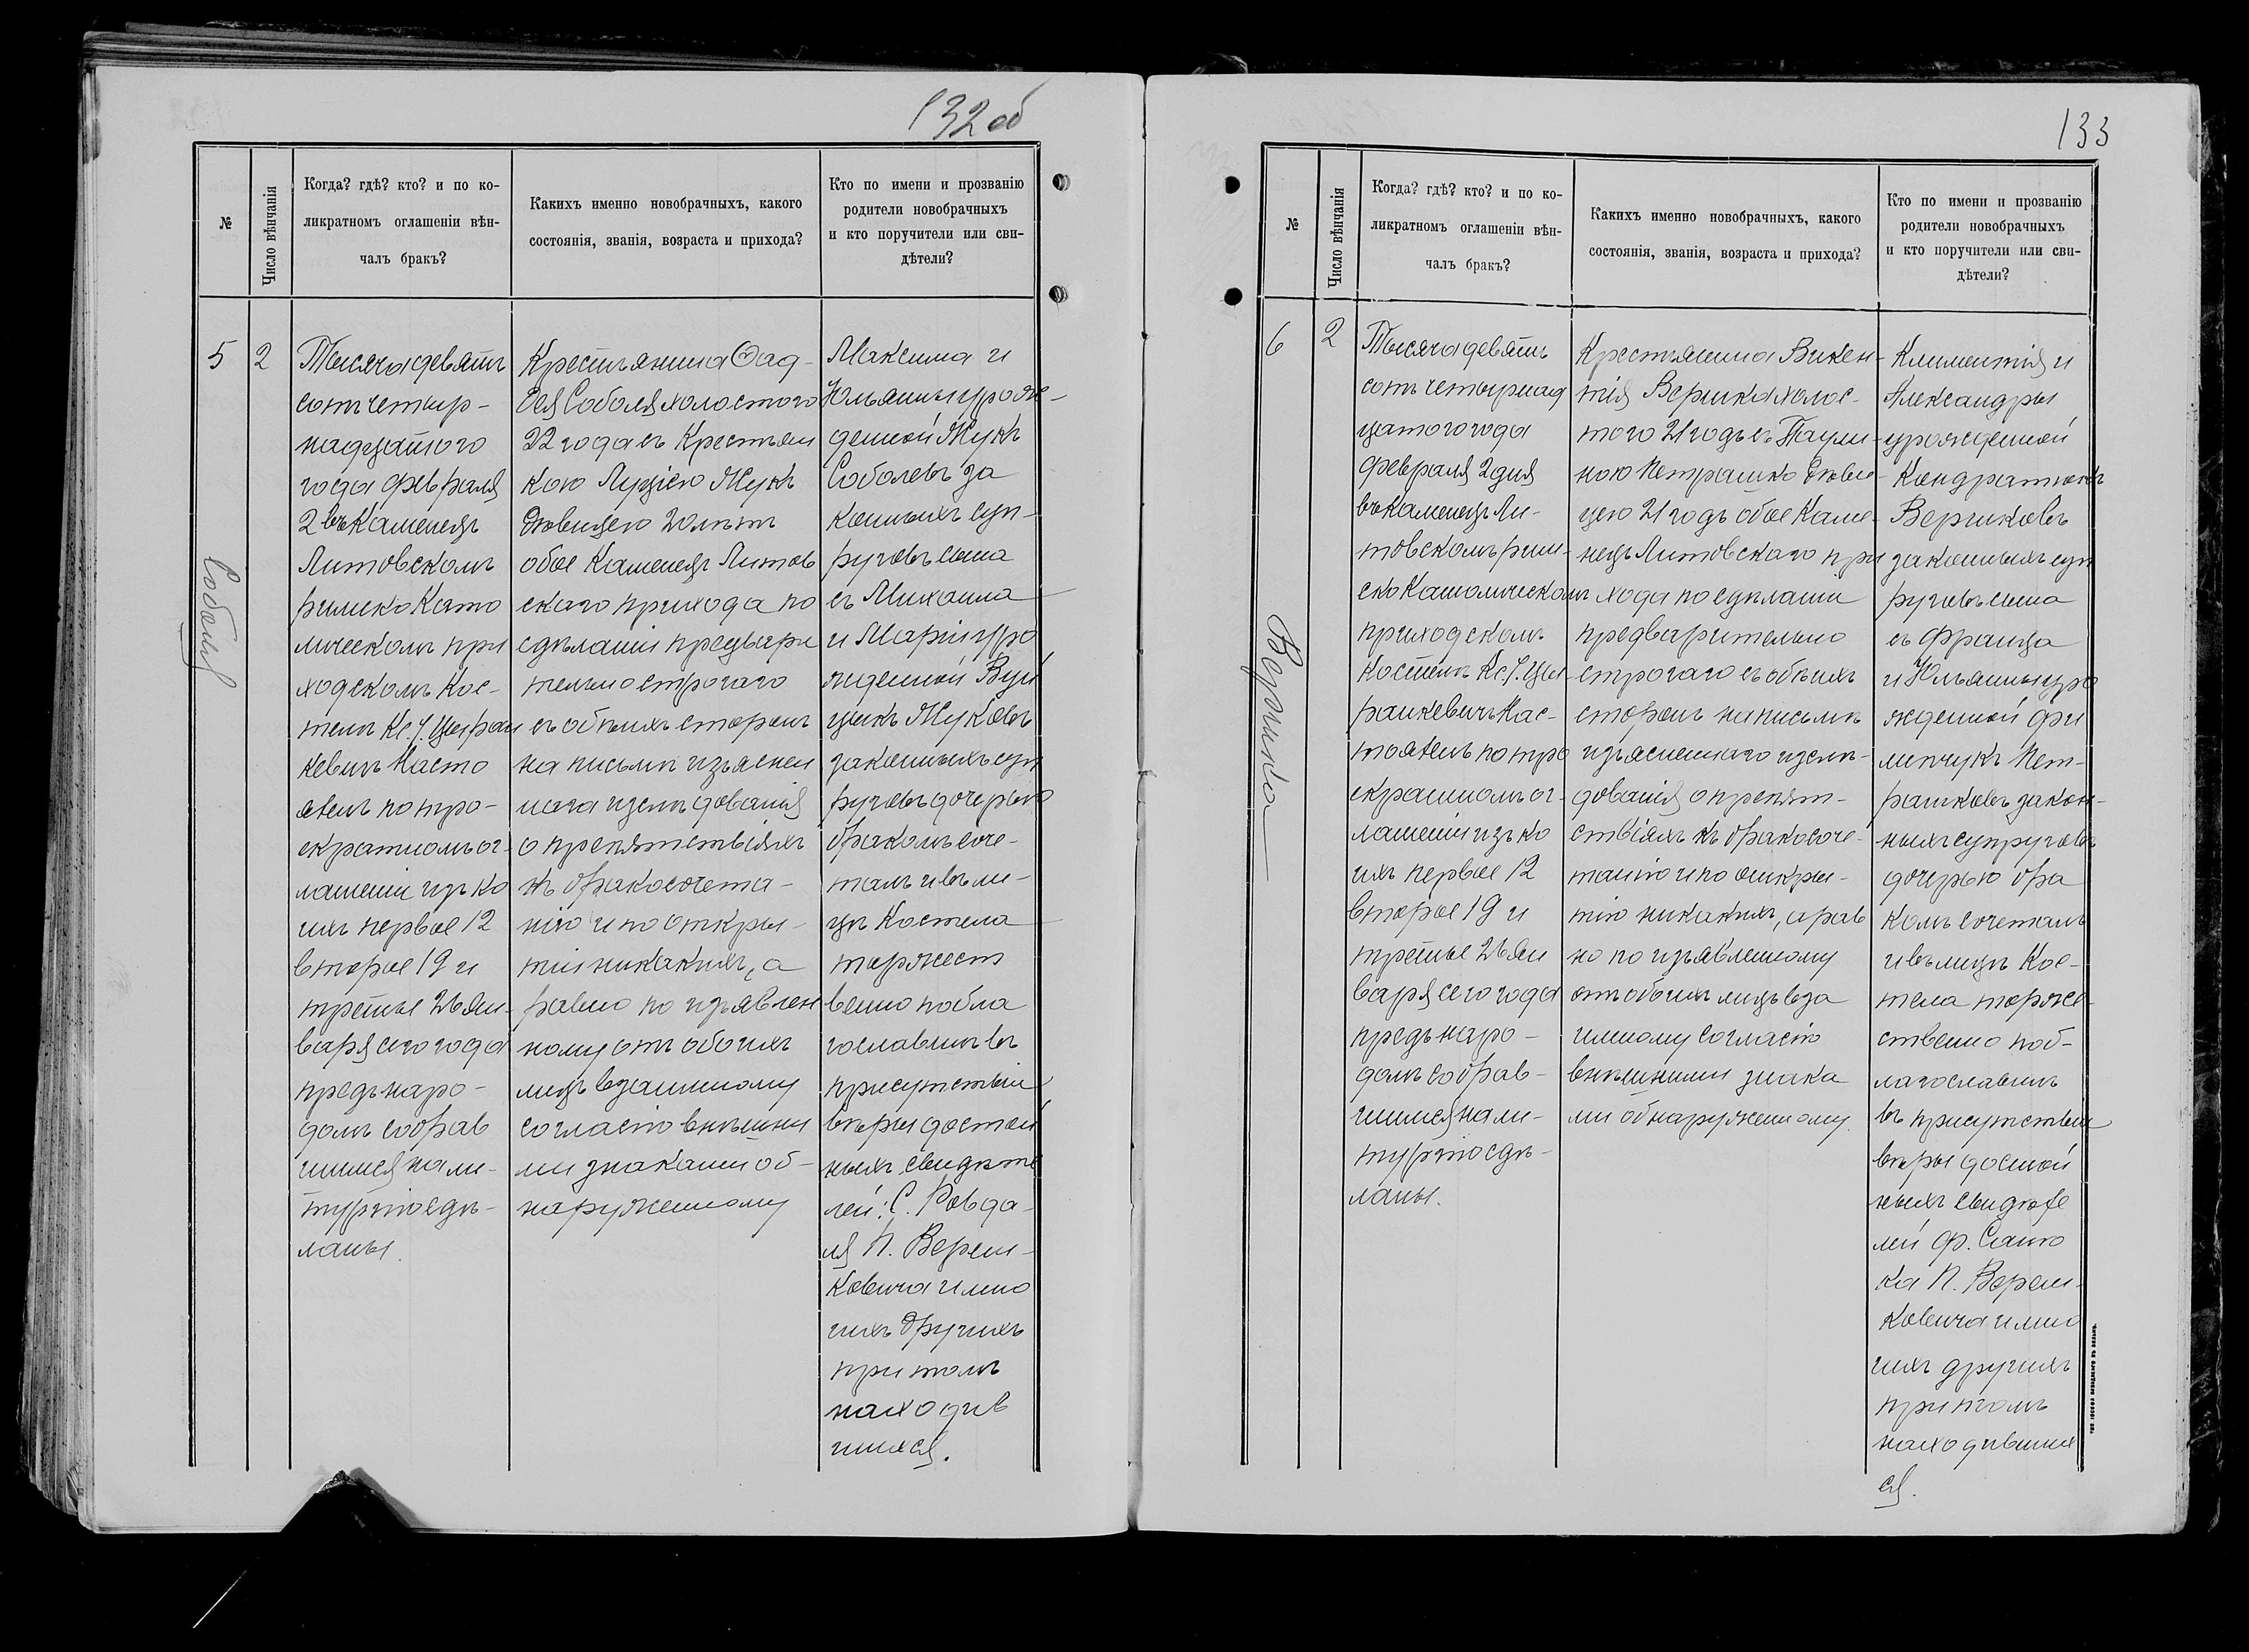 132 об
№
Число вѣнчанія
Когда? гдѣ? кто? и по ко-
ликратномъ оглашеніи вѣн-
чалъ бракъ?
Какихъ именно новобрачныхъ, какого
состоянія, званія, возраста и прихода?
Кто по имени и прозванію
родители новобрачныхъ
и кто поручители или сви-
дѣтели?
Соболь
5
2
Тысяча девять
сотъ четыр-
надцатого
года февраля
2 въ Каменецъ
Литовскомъ
римско Като
лическомъ при
ходскомъ Кос-
телѣ Кс. І. Цыран
кевичъ Насто
ятель по тро-
екратномъ ог-
лашеніи изъ ко
ихъ первое 12
второе 19 и
третье 26 Ян-
варя сего года
предъ наро-
домъ собрав
шимся на ли-
тургію сдѣ-
ланы.
Крестьянина Фад-
дея Соболя холостого
22 года съ Крестьян
кою Луціею Жукъ
дѣвицею 20 лѣтъ
обое Каменецъ Литов
скаго прихода по
сдѣланіи предвари
тельно строгаго
съ обѣихъ сторонъ
на письмѣ изъяснен
наго изслѣдованія
о препятствіяхъ
къ бракосочета-
нію и по откры-
тіи никакихъ, а
равно по изъявлен
ному отъ обоихъ
лицъ взаимному
согласію внѣшни
ми знаками об-
наруженному
Максима и
Юльянны урож-
денной Жукъ
Соболевъ за
конныхъ суп-
руговъ сына
съ Михаила
и Маріи уро
жденной Вуй
цикъ Жуковъ
законныхъ суп
руговъ дочерью
бракомъ соче-
талъ и въ ли-
цѣ Костела
торжест
венно побла
гославилъ въ
присутствіи
вѣры достой
ныхъ свидѣте
лей: С. Ровда-
ля П. Верем-
ковича и мно
гихъ другихъ
при томъ
находив
шихся.
133
№
Число вѣнчанія
Когда? гдѣ? кто? и по ко-
ликратномъ оглашеніи вѣн-
чалъ бракъ?
Какихъ именно новобрачныхъ, какого
состоянія, званія, возраста и прихода?
Кто по имени и прозванію
родители новобрачныхъ
и кто поручители или сви-
дѣтели?
Вершко
6
2
Тысяча девять
сотъ четырнад
цатого года
февраля 2 дня
въ Каменецъ Ли-
товскомъ рим-
ско Католическомъ
приходскомъ
Костелѣ Кс. І. Цы-
ранкевичъ Нас-
тоятель по тро
екратномъ ог-
лашеніи изъ ко
ихъ первое 12
второе 19 и
третье 26 Ян
варя сего года
предъ наро-
домъ собрав-
шимся на ли-
тургію сдѣ-
ланы.
Крестьянина Викен-
тія Вершка холос-
того 21 годъ съ Паули-
ною Петрашко дѣви-
цею 21 годъ обое Каме-
нецъ Литовскаго при
хода по сдѣланіи
предварительно
строгаго съ обѣихъ
сторонъ на письмѣ
изъясненнаго изслѣ-
дованія о препят-
ствіяхъ къ бракосоче-
танію и по откры-
тію никакихъ, а рав
но по изъявленному
отъ обоихъ лицъ вза
имному согласію
внѣшними знака
ми обнаруженному.
Климентія и
Александры
урожденной
Кондратюкъ
Вершковъ
законныхъ суп
руговъ сына
съ Франца
и Юльянны уро
жденной Фи
липчукъ Пет-
рашковъ закон-
ныхъ супруговъ
дочерью бра
комъ сочеталъ
и въ лицѣ Кос-
тела торже-
ственно поб-
лагославилъ
въ присутствіи
вѣры достой
ныхъ свидѣте
лей Ф.
П. Верем-
ковича и мно
гихъ другихъ
при томъ
находившихъ
ся.